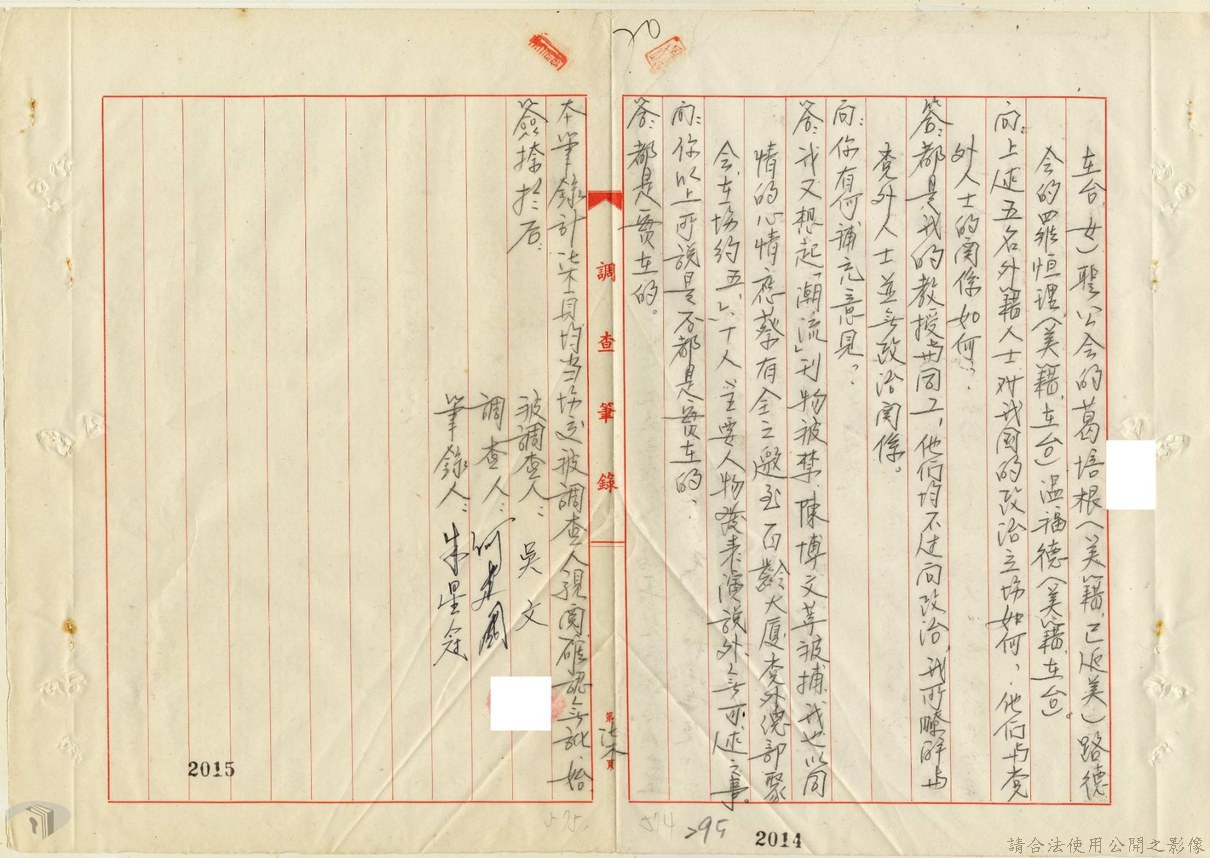 20
在台、女）聖公会的葛培根（美籍、已返美）路德
会的羅恒理（美籍、在台）温福德（美籍、在台）。
问：上述五名外籍人士对我国的政治立場如何，他们与党
外人士的関係如何？
答：都是我的教授与同工，他们均不过问政治，我所瞭解与
党外人士並無政治関係。
问：你有何補充意見？
答：我又想起「潮流」刊物被禁、陳博文等被捕，我也以同
情的心情應蔡有全之邀至百齡大厦党外總部聚
会，在場約五、六十人，主要人物發表演説外無可述之事。
问：你以上所説是否都是實在的？
答：都是實在的。
調查筆錄
第柒頁
本筆錄計柒頁均当場交被調查人親閱確認無訛始
簽捺於后：
被調查人：吳文
調查人：何建國
筆錄人：朱星冠
2015
575.
574
295
2014
請合法使用公開之影像